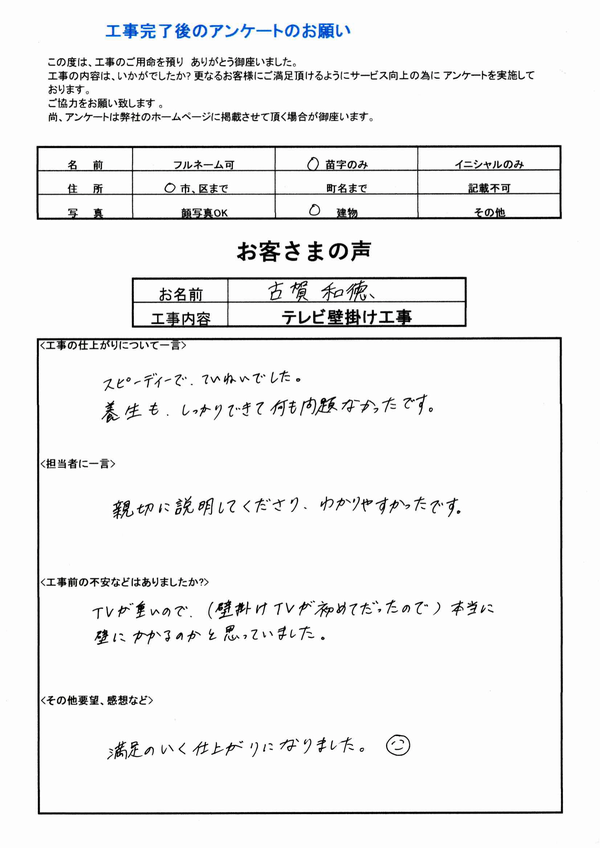 工事完了後のアンケートのお願い
この度は、工事のご用命を預り ありがとう御座いました。
工事の内容は、いかがでしたか? 更なるお客様にご満足頂けるようにサービス向上の為に アンケートを実施して
おります。
ご協力をお願い致します 。
尚、アンケートは弊社のホームページに掲載させて頂く場合が御座います。
名 前 フルネーム可 ○ 苗字のみ イニシャルのみ
住 所 ○ 市、区まで 町名まで 記載不可
写 真 顔写真OK ○ 建物 その他
お客さまの声
お名前 古賀 和徳
工事内容 テレビ壁掛け工事
<工事の仕上がりについて一言>
スピーディーで、ていねいでした。
養生も、しっかりできて何も問題なかったです。
<担当者に一言>
親切に説明してくださり、わかりやすかったです。
<工事前の不安などはありましたか?>
TVが重いので、(壁掛けTVが初めてだったので)本当に
壁にかかるのかと思っていました。
<その他要望、感想など>
満足のいく仕上がりになりました。